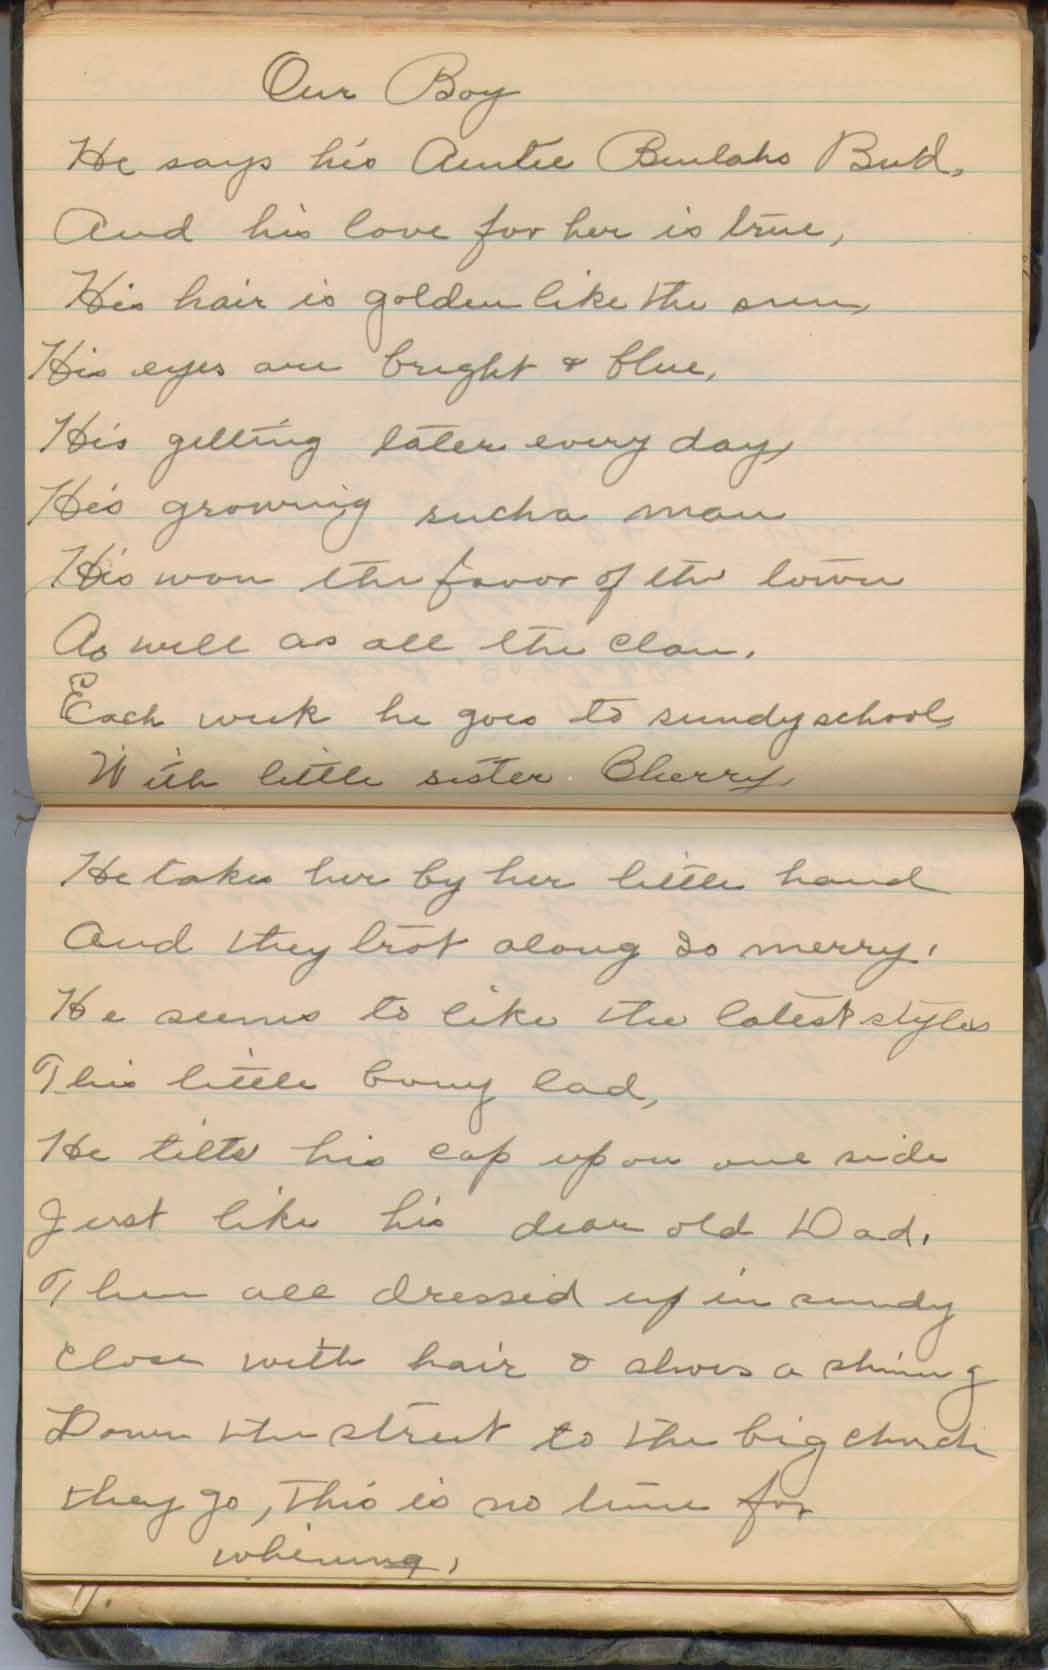 Our Boy
He says his Auntie Beulahs Bud,
And his love for her is true,
His hair is golden like the sun,
His eyes are bright & blue,
His getting later every day,
His growing such a man
His won the favor of the town
As well as all the clan.
Each week he goes to sundy school,
With little sister Cherry,
He takes her by her little hand
And they trot along so merry.
He seems to like the latest styles
This little bony lad,
He tilts his cap up on one side
Just like his dear old Dad.
Then all dressed up in sundy
close with hair & shoes a shining
Down the street to the big church
they go, This is no time for
whining.